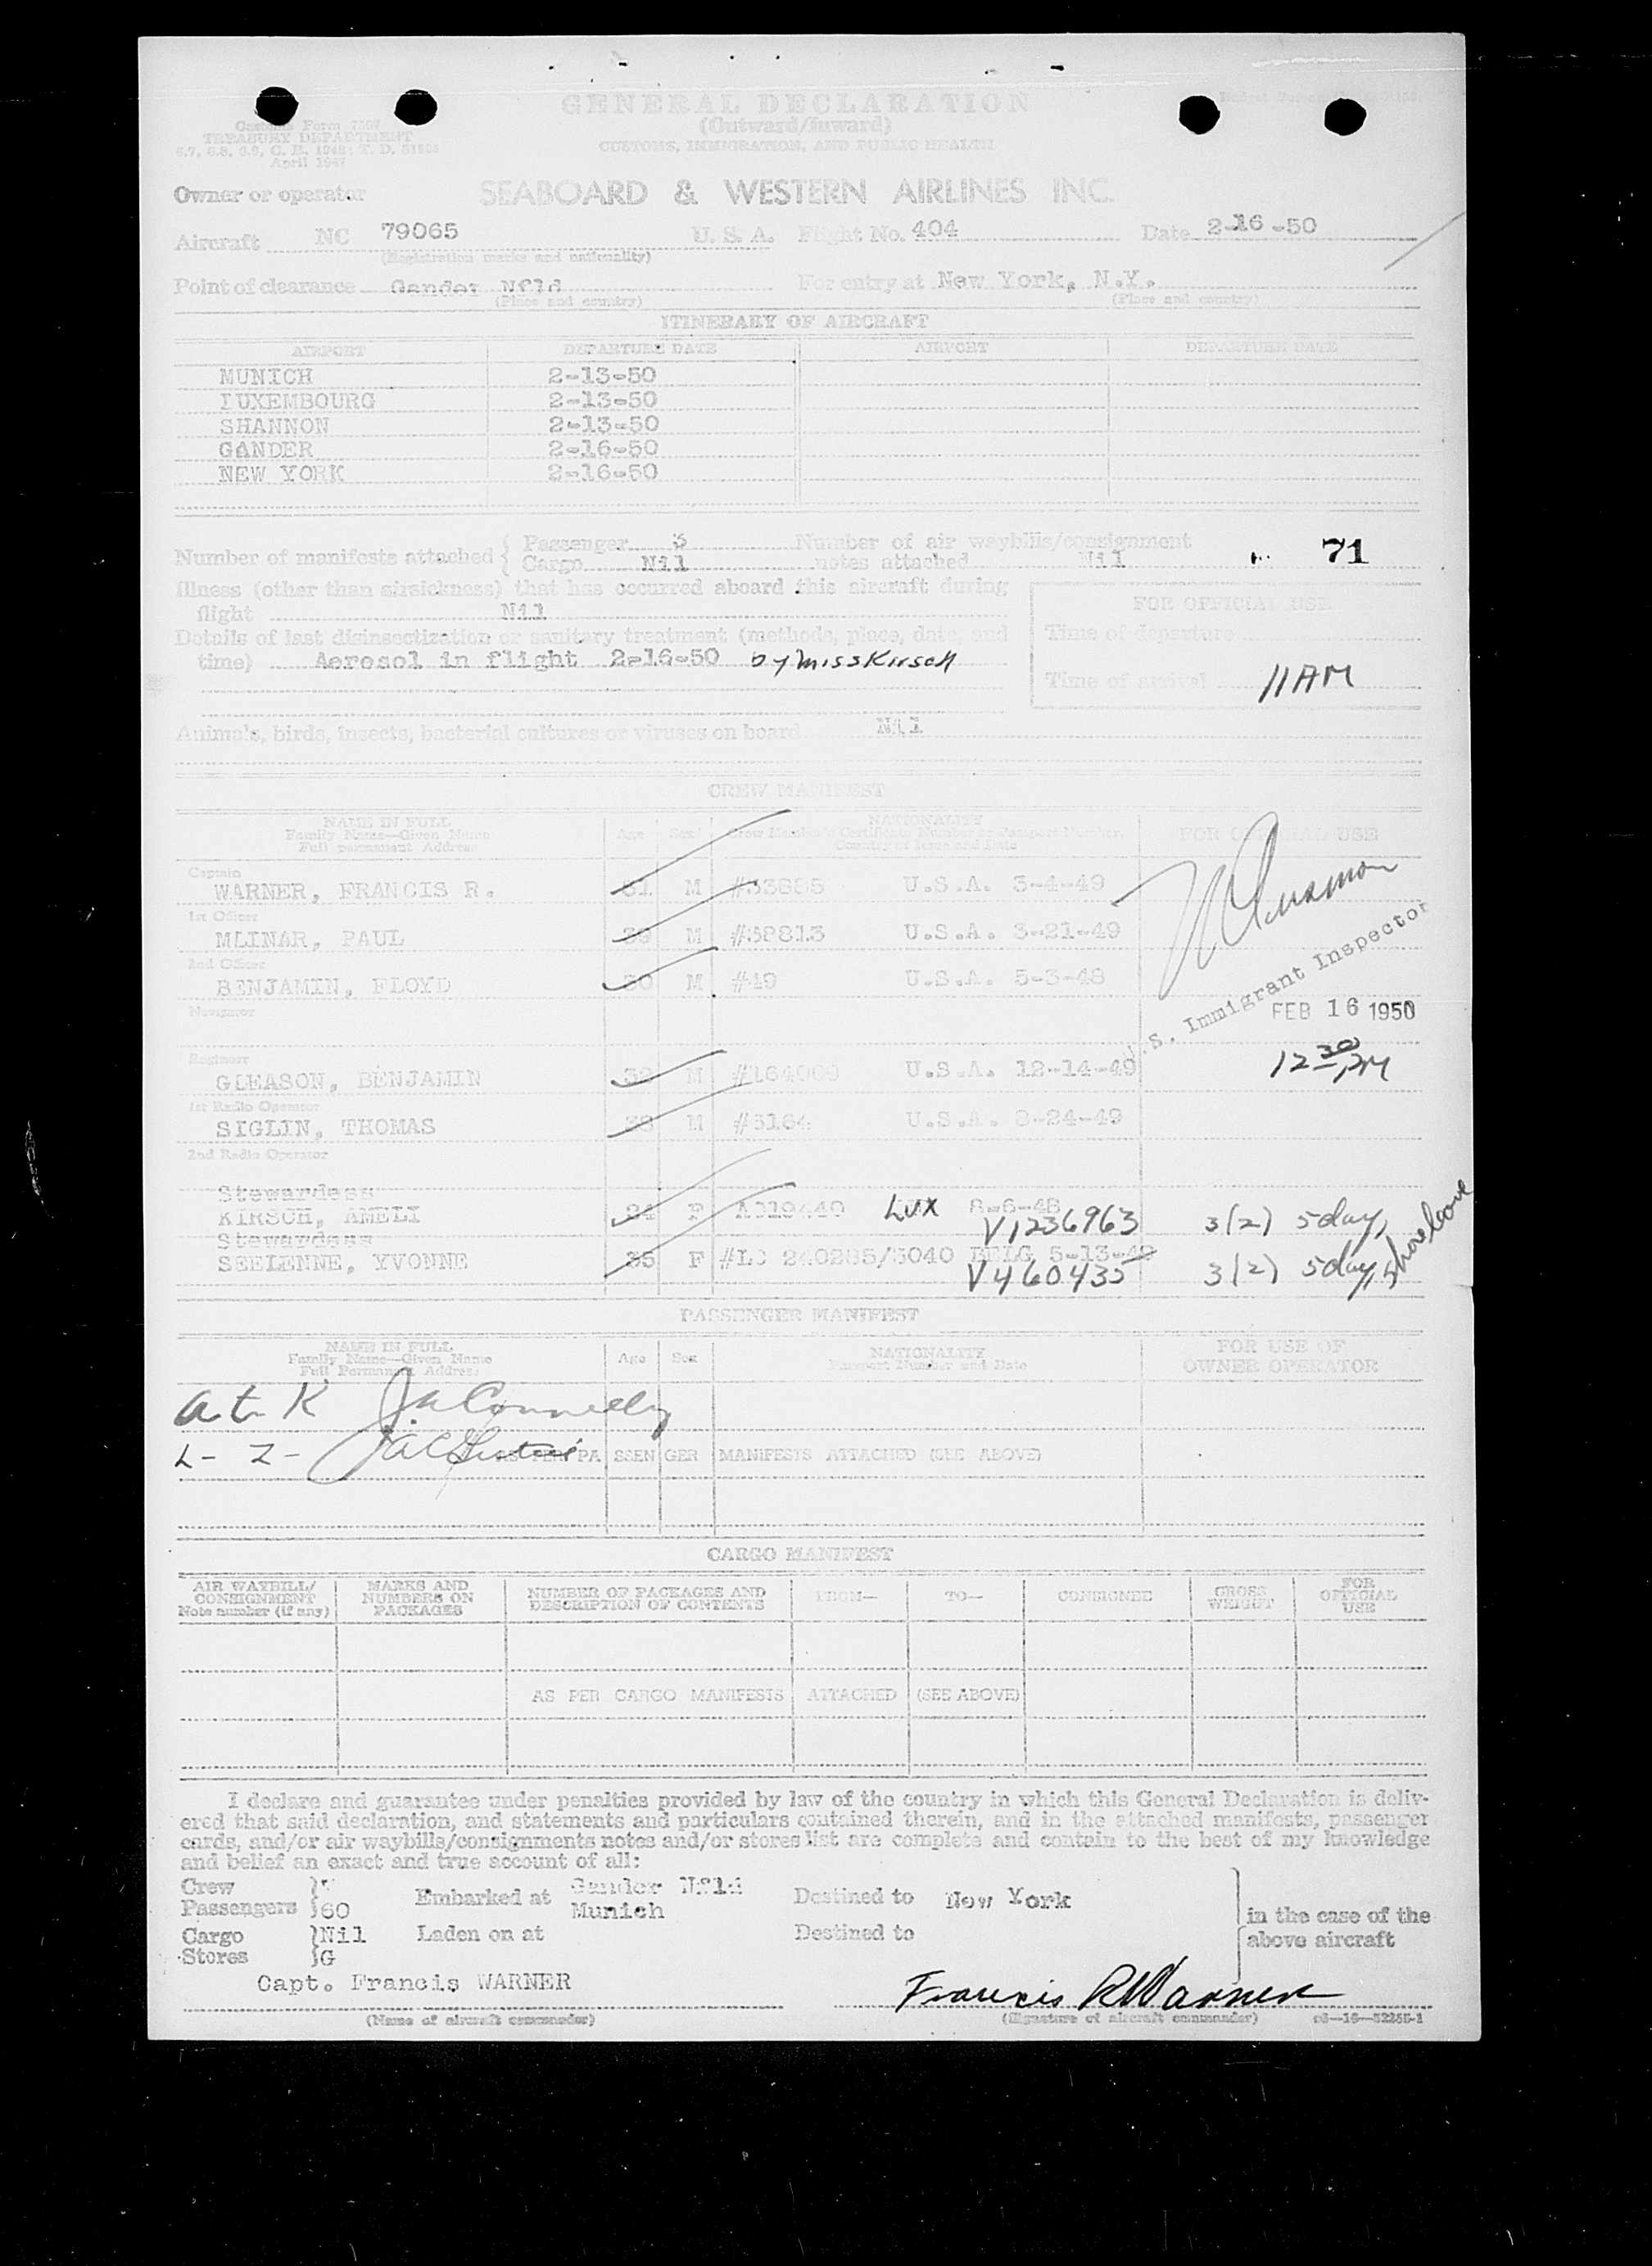 GENERAL DECLARATION
(Outward/Inward)
CUSTOMS, IMMIGRATION, AND PUBLIC HEALTH
Customs Form 7507
TREASURY DEPARTMENT
April 1947
Owner or operator SEABOARD & WESTERN AIRLINES INC.
Aircraft NC 79065 U. S. A. Flight No. 404 Date 2-16-50
(Registration marks and nationality)
Point of clearance Gander Nfld For entry at New York, N.Y.
(Place and country) (Place and country)
ITINERARY OF AIRCRAFT
AIRPORT DEPARTURE DATE AIRPORT DEPARTURE DATE
MUNICH 2-13-50
LUXEMBOURG 2-13-50
SHANNON 2-13-50
GANDER 2-16-50
NEW YORK 2-16-50
Number of manifests attached { Passenger 3 Number of air waybills/consignment
Cargo Nil notes attached Nil 71
Illness (other than airsickness) that has occurred aboard this aircraft during
flight Nil
FOR OFFICIAL USE
Details of last disinsectization or sanitary treatment (methods, place, date, and
Time of departure
time) Aerosol in flight 2-16-50 by Miss Kirsch
Time of arrival 11 AM
Animals, birds, insects, bacterial cultures or viruses on board Nil
CREW MANIFEST
NAME IN FULL Age Sex NATIONALITY FOR OFFICIAL USE
Family Name—Given Name Crew Member's Certificate Number or Passport Number,
Full permanent Address Country of Issue and Date
Captain
WARNER, FRANCIS R. 31 M U.S.A. 3-4-49
1st Officer
MLINAR, PAUL M U.S.A. 3-21-49
2nd Officer
BENJAMIN, FLOYD 30 M #49 U.S.A. 5-3-48
Navigator
U.S. Immigrant Inspector
FEB 16 1950
12 30 PM
Engineer
GLEASON, BENJAMIN 32 M U.S.A. 12-14-49
1st Radio Operator
SIGLIN, THOMAS M U.S.A. 8-24-49
2nd Radio Operator
Stewardess
KIRSCH, AMELI 24 F LUX 8-6-48
V1236963 3(2) 5 day,
Stewardess
SEELENNE, YVONNE 35 F BELG 5-13-49
V460435 3(2) 5 day, shore leave
PASSENGER MANIFEST
NAME IN FULL Age Sex NATIONALITY FOR USE OF
Family Name—Given Name Passport Number and Date OWNER OPERATOR
Full Permanent Address
A to K J.A. Connelly
L - Z -
AS PER PASSENGER MANIFESTS ATTACHED (SEE ABOVE)
CARGO MANIFEST
AIR WAYBILL/ MARKS AND NUMBER OF PACKAGES AND FROM— TO— CONSIGNEE GROSS FOR
CONSIGNMENT NUMBERS ON DESCRIPTION OF CONTENTS WEIGHT OFFICIAL
Note number (if any) PACKAGES USE
AS PER CARGO MANIFESTS ATTACHED (SEE ABOVE)
I declare and guarantee under penalties provided by law of the country in which this General Declaration is deliv-
ered that said declaration, and statements and particulars contained therein, and in the attached manifests, passenger
cards, and/or air waybills/consignments notes and/or stores list are complete and contain to the best of my knowledge
and belief an exact and true account of all:
Crew Embarked at Gander Nfld Destined to New York
Passengers 60 Munich
in the case of the
Cargo Nil Laden on at Destined to
above aircraft
Stores G
Capt. Francis WARNER Francis R Warner
(Name of aircraft commander) (Signature of aircraft commander)